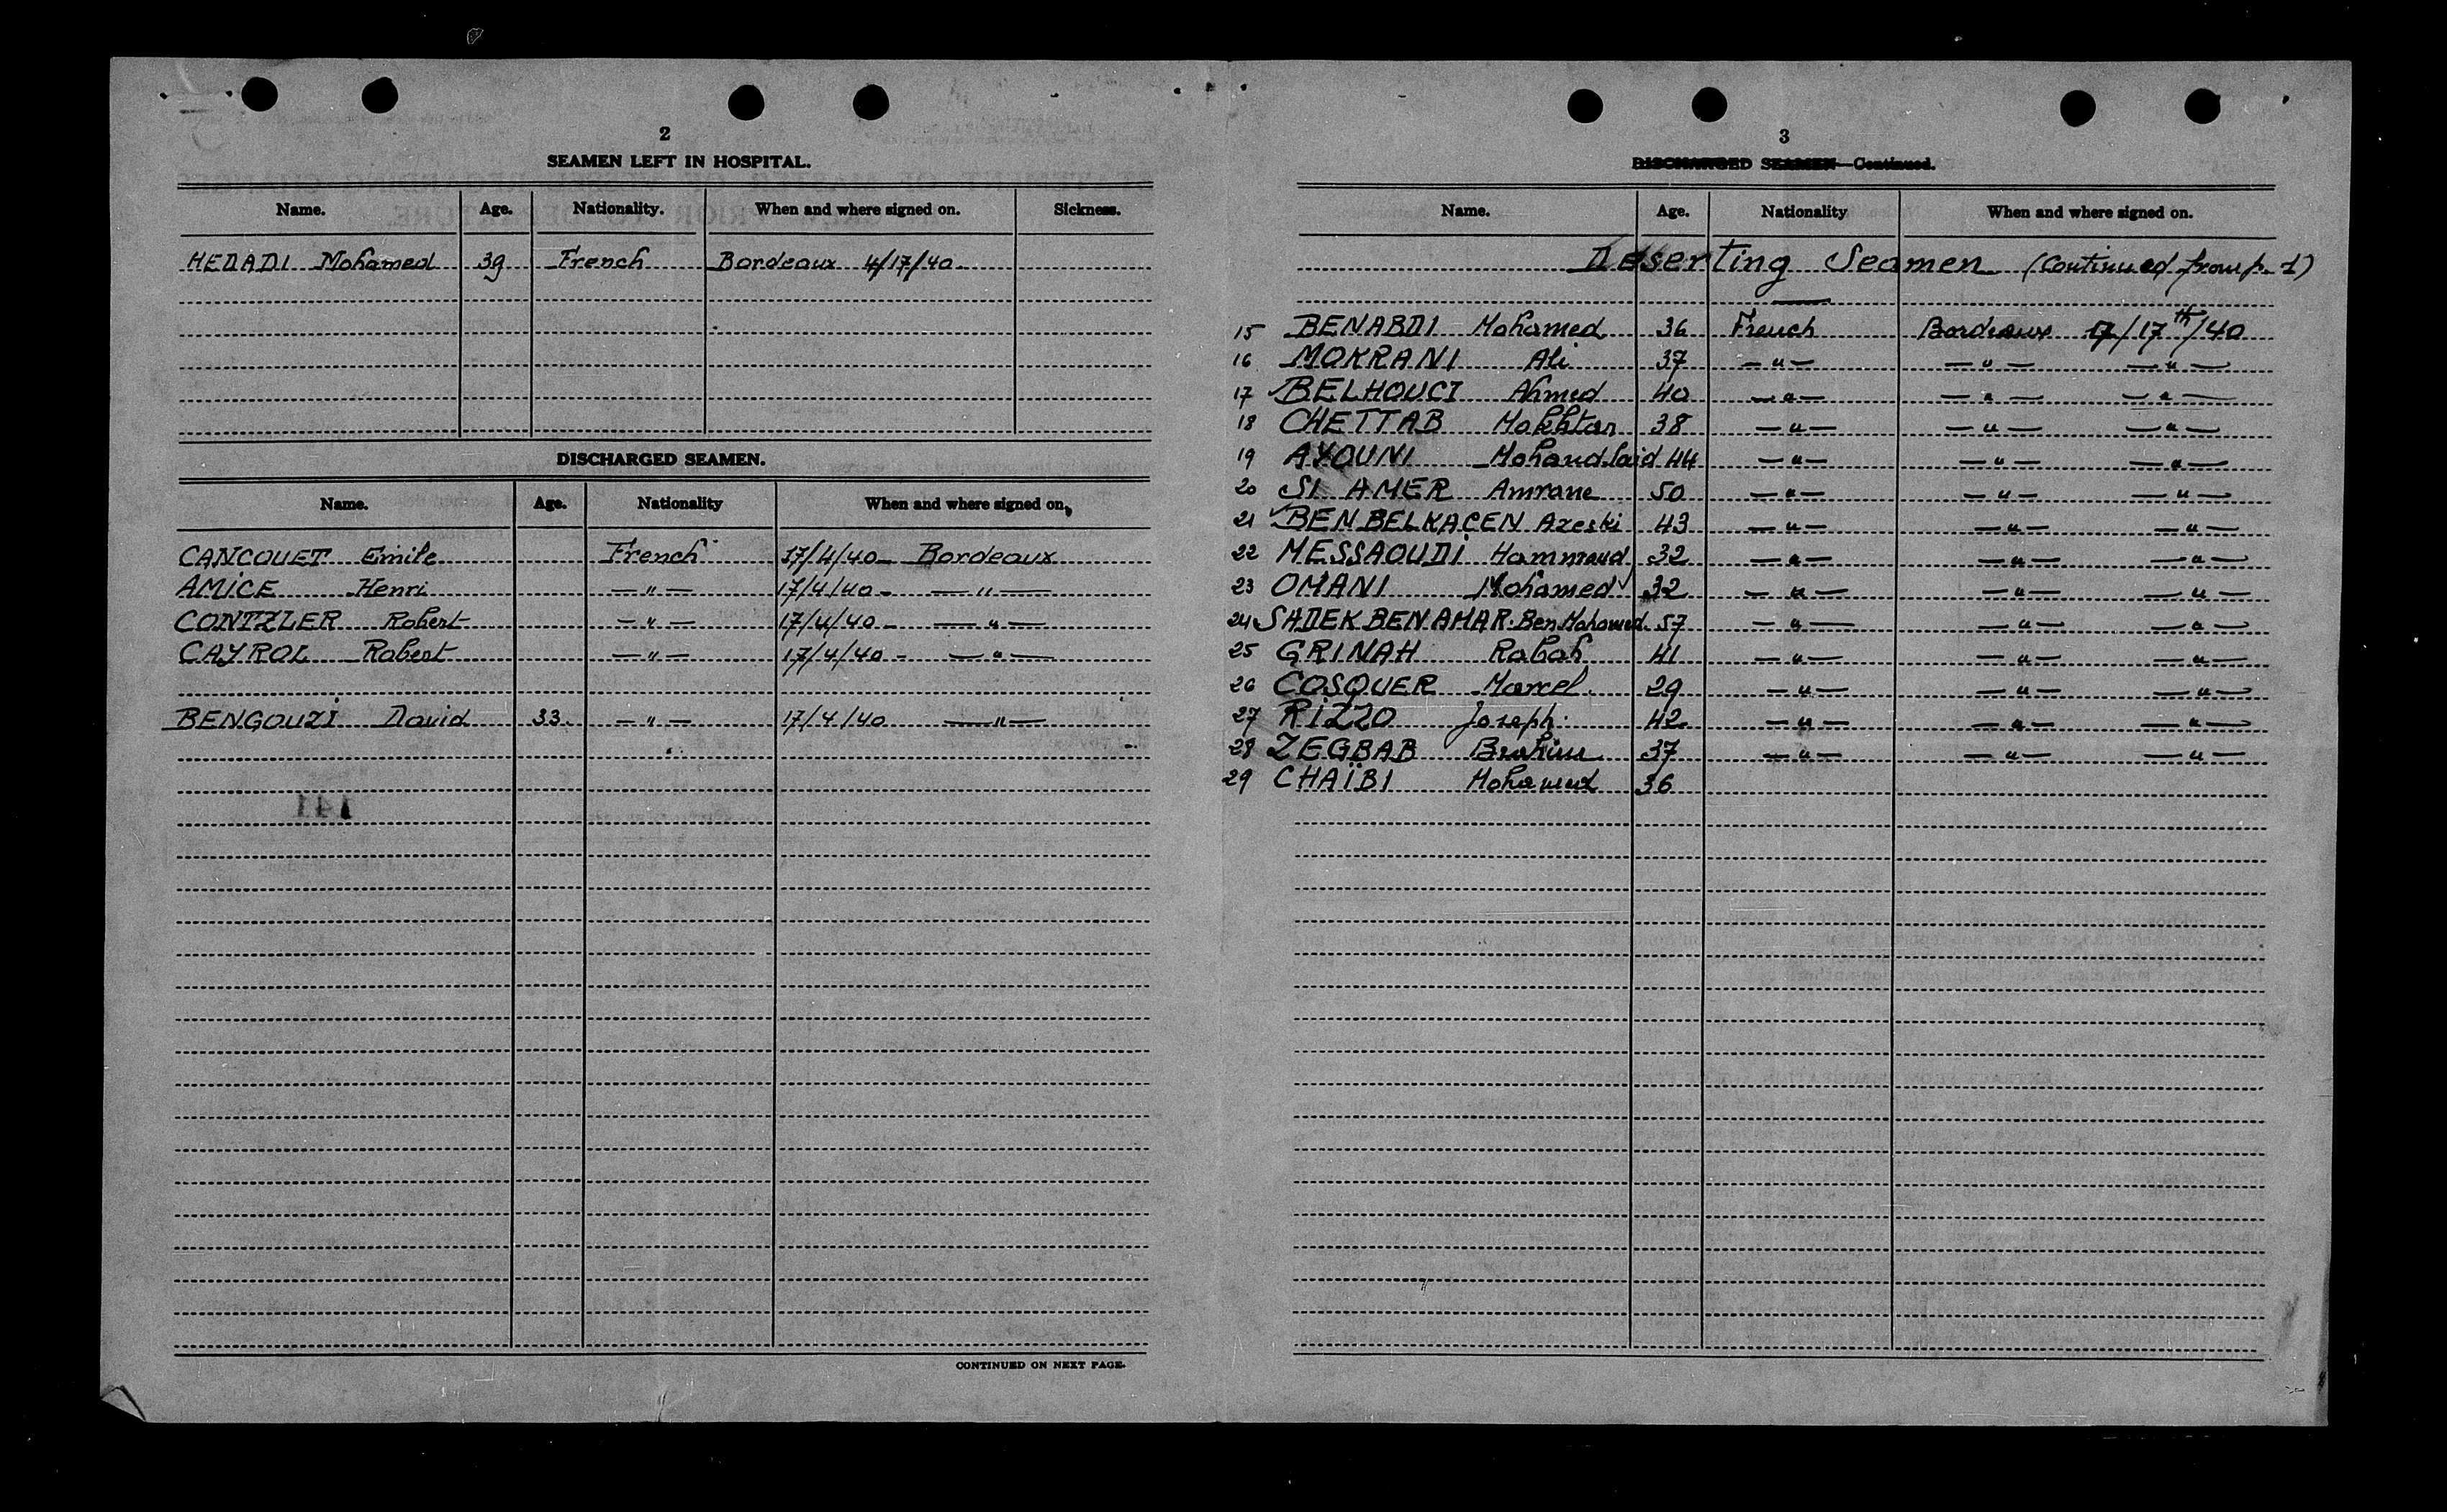 2
SEAMEN LEFT IN HOSPITAL.
Name. Age. Nationality. When and where signed on. Sickness.
HEDADI Mohamed 39 French Bordeaux 4/17/40
DISCHARGED SEAMEN.
Name. Age. Nationality When and where signed on.
CANCOUET Emile French 17/4/40 - Bordeaux
AMICE Henri —"— 17/4/40 - —"—
CONTZLER Robert —"— 17/4/40 - —"—
CAYROL Robert —"— 17/4/40 - —"—
BENGOUZI David 33 —"— 17/4/40 —"—
141
CONTINUED ON NEXT PAGE.
3
DISCHARGED SEAMEN—Continued.
Name. Age. Nationality When and where signed on.
Deserting Seamen (Continued from p. 1)
15 BENABDI Mohamed 36 French Bordeaux 4/17th/40
16 MOKRANI Ali 37 —"— —"— —"—
17 BELHOUCI Ahmed 40 —"— —"— —"—
18 CHETTAB Mokhtar 38 —"— —"— —"—
19 AYOUNI Mohand Said 44 —"— —"— —"—
20 SI AMER Amrane 50 —"— —"— —"—
21 BEN BELKACEN Azeski 43 —"— —"— —"—
22 MESSAOUDI Hammoud 32 —"— —"— —"—
23 OMANI Mohamed 32 —"— —"— —"—
24 SADEK BEN AMAR Ben Mohamed 57 —"— —"— —"—
25 GRINAH Rabah 41 —"— —"— —"—
26 COSQUER Marcel 29 —"— —"— —"—
27 RIZZO Joseph 42 —"— —"— —"—
28 ZEGBAB Brahim 37 —"— —"— —"—
29 CHAÏBI Mohamed 36